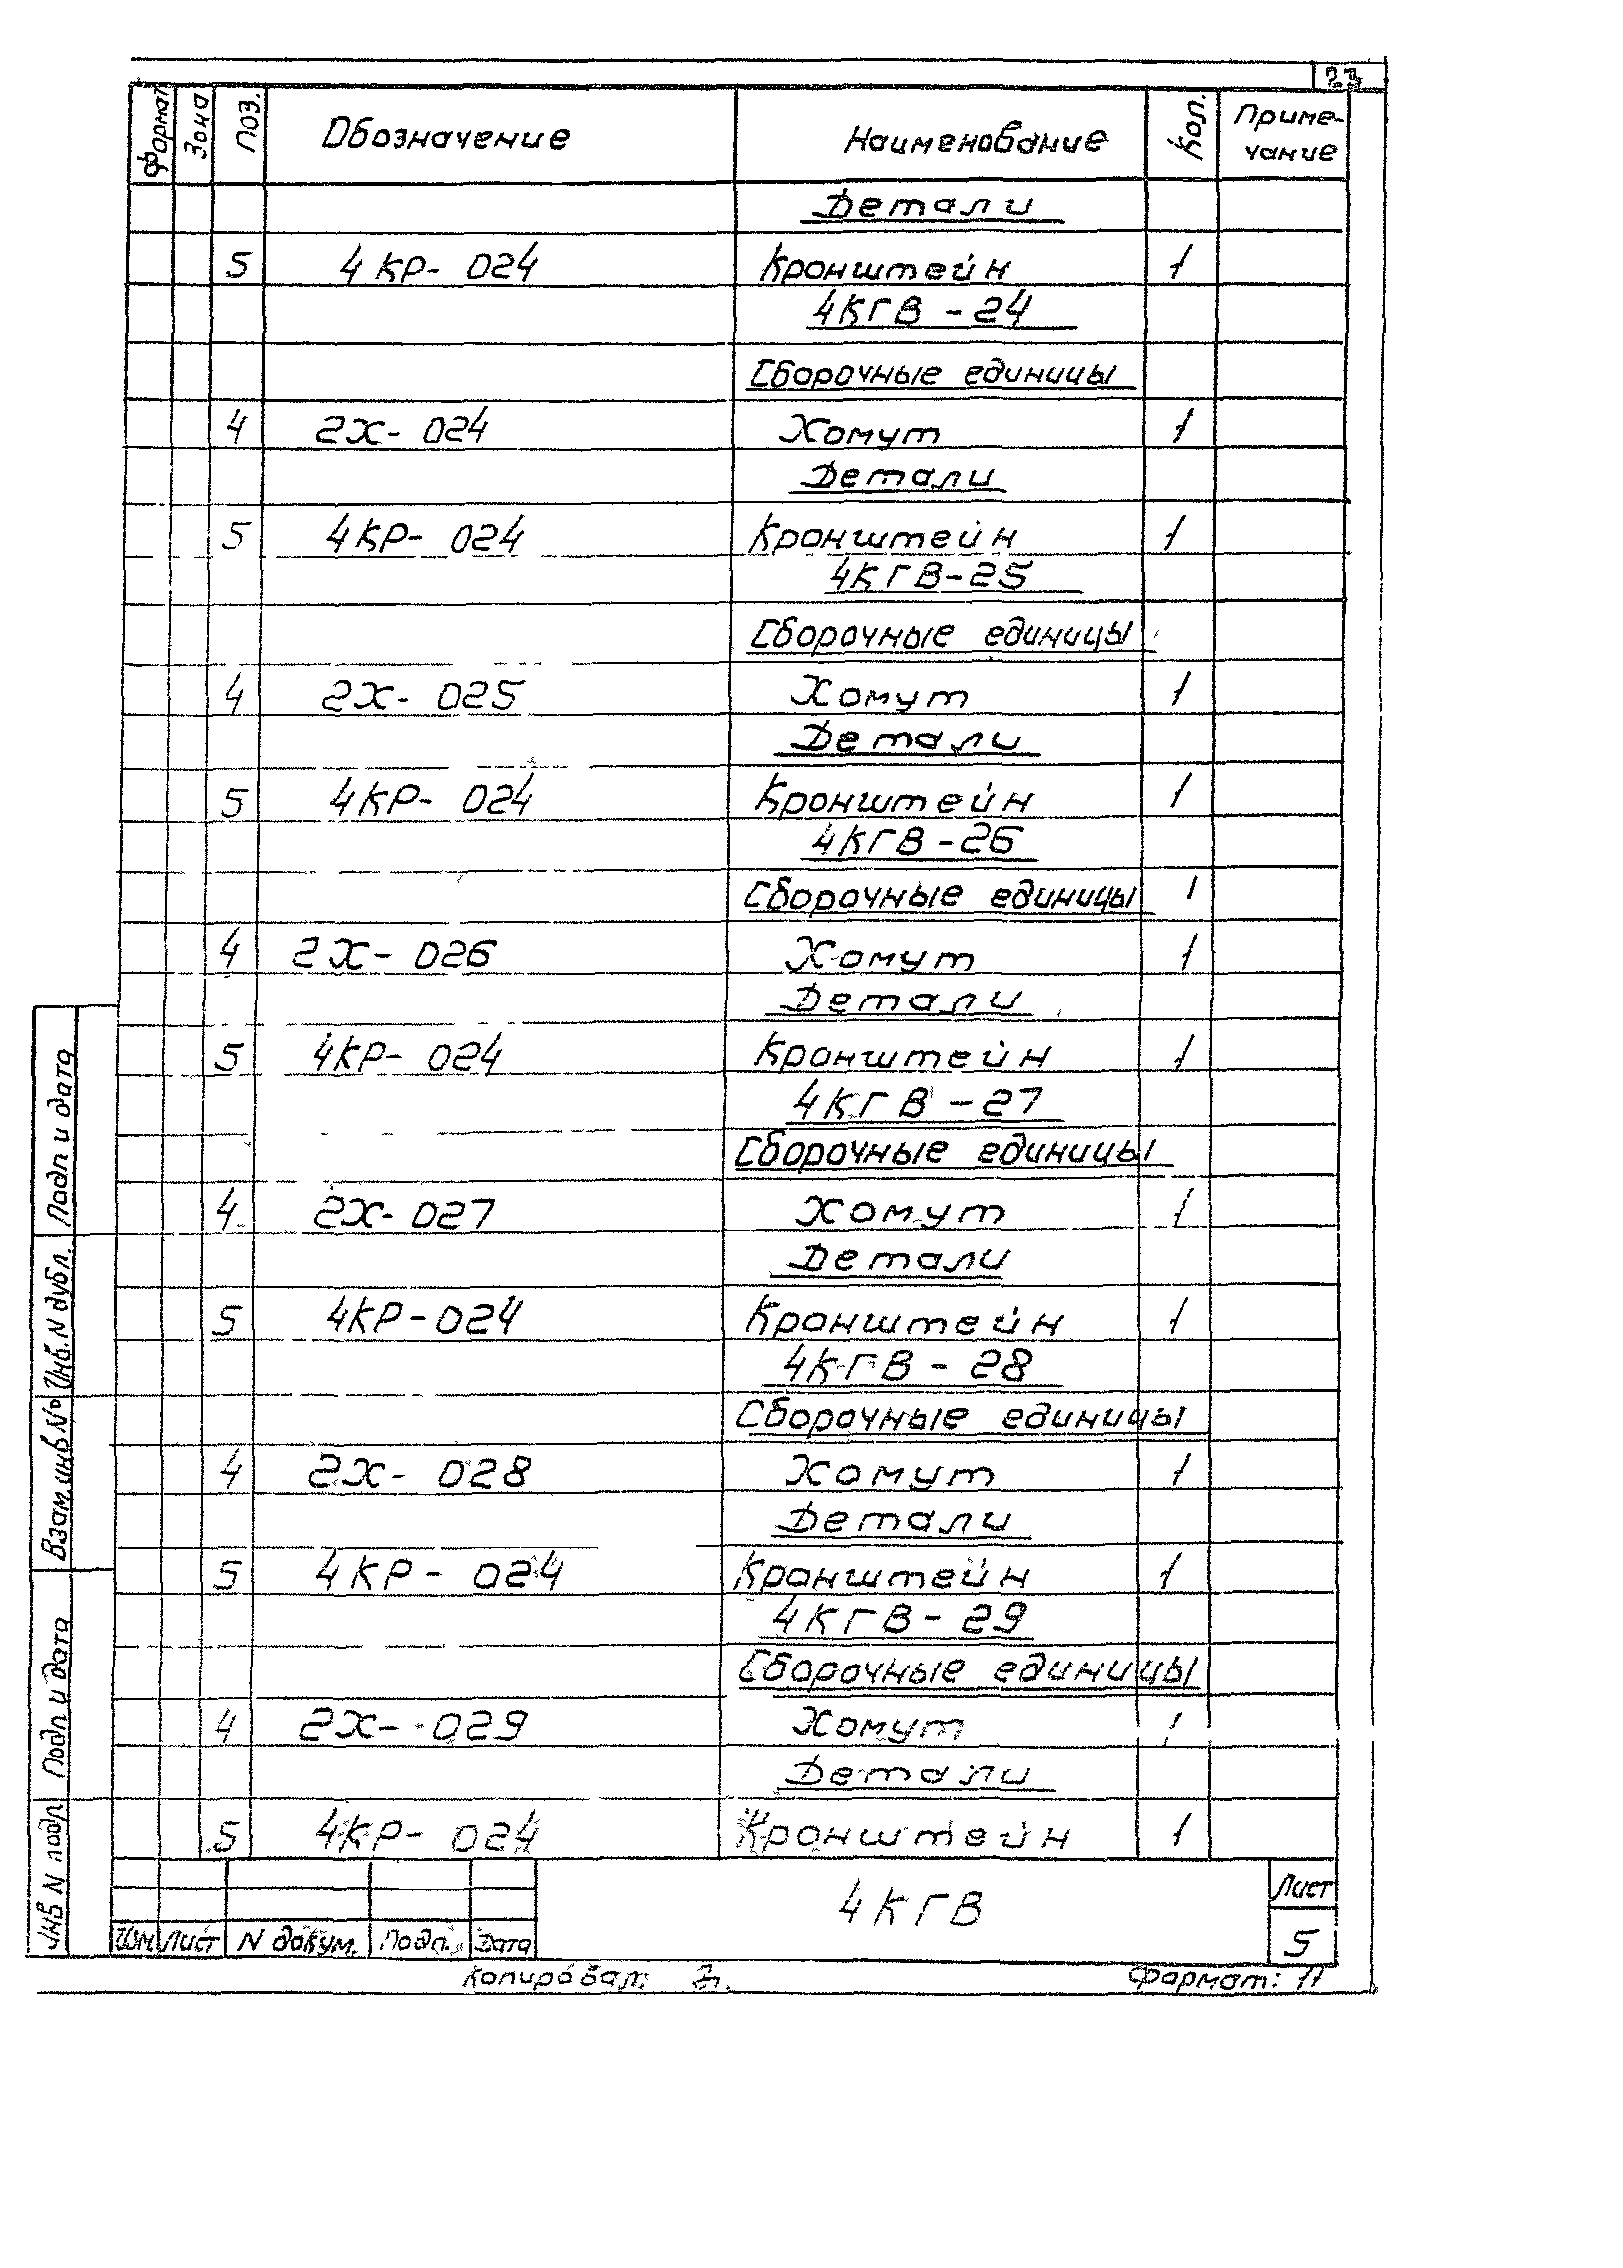 Формат Зона Поз. Обозначение Наименование Кол. Приме-
чание
Детали
5 4КР- 024 Кронштейн 1
4КГВ -24
Сборочные единицы
4 2Х- 024 Хомут 1
Детали
5 4КР- 024 Кронштейн 1
4КГВ-25
Сборочные единицы
4 2Х- 025 Хомут 1
Детали
5 4КР- 024 Кронштейн 1
4КГВ -26
Сборочные единицы 1
4 2Х- 026 Хомут 1
Детали
5 4КР- 024 Кронштейн 1
4КГВ -27
Сборочные единицы
4 2Х- 027 Хомут 1
Детали
5 4КР-024 Кронштейн 1
4КГВ - 28
Сборочные единицы
4 2Х- 028 Хомут 1
Детали
5 4КР- 024 Кронштейн 1
4КГВ- 29
Сборочные единицы
4 2Х- 029 Хомут 1
Детали
5 4КР- 024 Кронштейн 1
Подп и дата
Инв. N дубл.
Взам инв №
Подп и дата
Инв N подл
Изм Лист N докум. Подп. Дата
4КГВ
Лист
5
Копировал: Формат: 11